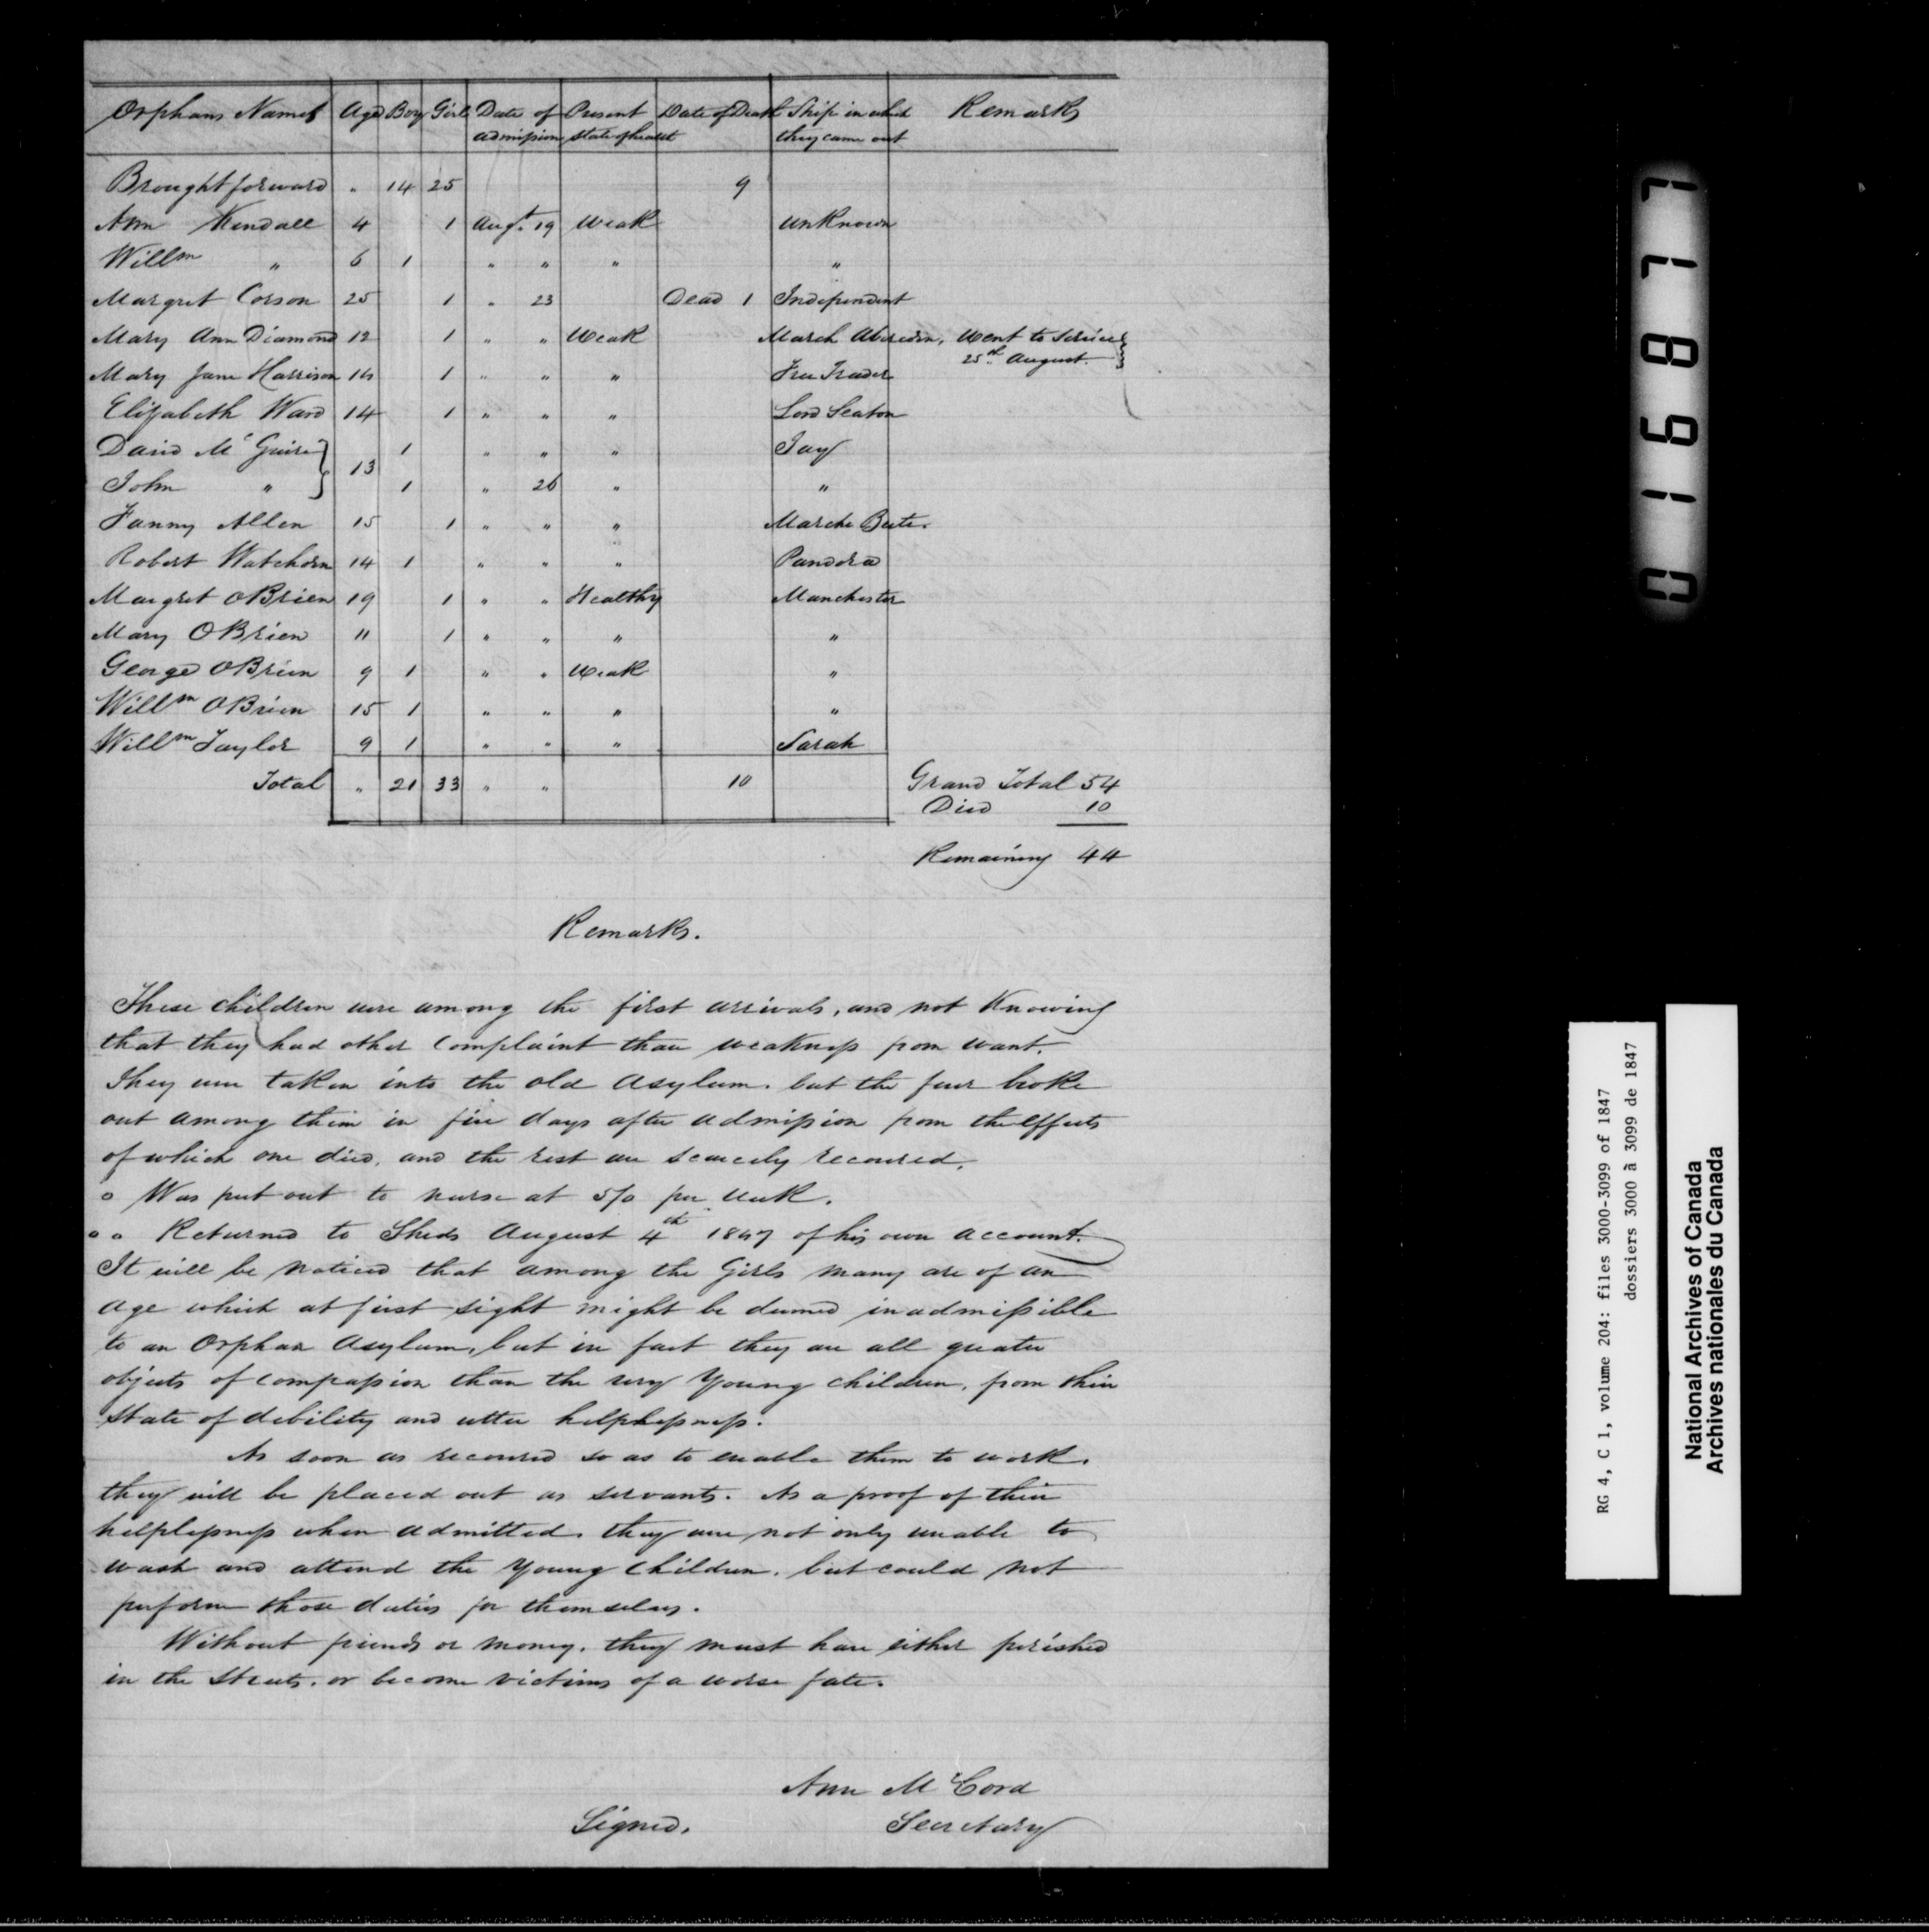 Orphans Names Age Boy Girl Date of admission Present state of health Date of Death Ship in which they came out Remarks
Brought forward " 14 25 9
Ann Kendall 4 1 Augt. 19 Weak unknown
Willm " 6 1 " " " "
Margret Corson 25 1 " 23 Dead 1 Independent
Mary Ann Diamond 12 1 " " Weak March Aberedin, Went to Service 25th August.
Mary Jane Harrison 14 1 " " " Free Trader
Elizabeth Ward 14 1 " " " Lord Seaton
David McGuire } 13 1 " " " Jay
John " 1 " 26 " "
Fanny Allen 15 1 " " " Marche Bute.
Robert Watchorn 14 1 " " " Pandora
Margret OBrien 19 1 " " Healthy Manchester
Mary OBrien 11 1 " " " "
George OBrien 9 1 " " Weak "
Willm OBrien 15 1 " " " "
Willm Taylor 9 1 " " " Sarah
Total " 21 33 " " 10 Grand Total 54
Died 10
Remaining 44
Remarks.
These children were among the first arrivals, and not Knowing
that they had other Complaint than weakness from want.
They were taken into the old Asylum. but the fever broke
out among them in five days after admission from the effects
of which one died, and the rest are scarcely recovered.
o Was put out to nurse at 5/0 per Week.
o o Returned to Sheds August 4th 1847 of his own account.
It will be noticed that among the Girls many are of an
age which at first sight might be deemed inadmissible
to an Orphan Asylum, but in fact they are all greater
objects of compassion than the very Young children, from their
state of debility and utter helplessness.
As soon as recovered so as to enable them to work.
they will be placed out as servants. As a proof of their
helplessness when admitted. they were not only unable to
wash and attend the Young Children. but could not
perform those duties for themselves.
Without friends or money. they must have either perished
in the Streets. or become victims of a worse fate.
Ann McCord
Signed. Secretary
016877
RG 4, C 1, volume 204: files 3000-3099 of 1847
dossiers 3000 à 3099 de 1847
National Archives of Canada
Archives nationales du Canada